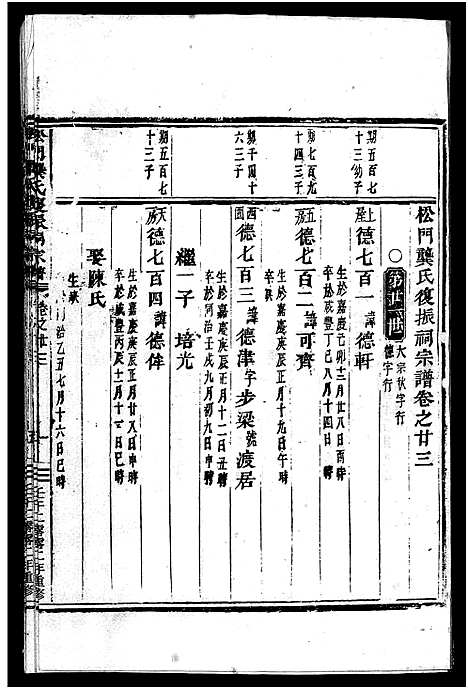 松門龔氏復振祠宗譜卷之廿三
第廿一世
大宗秋字行
德字行
期五百七
十三幼子
上屋
德七百一
諱德軒
生於嘉慶己卯十二月廿八日巳時
卒於咸豐丁巳八月十四日
期七百九
十四三子
德七百二
諱可齊
生於嘉慶庚辰正月十九日午時
期千四十
六三子
西園
德七百三
諱德津字步梁號渡居
生於嘉慶庚辰正月十二日丑時
卒於同治壬戌九月初九日申時
繼一子
培光
期五百七
十三子
德七百四
諱德俸
生於嘉慶庚辰
卒於咸豐丙辰十一月十一日巳時
娶陳氏
生
治乙丑七月十六日巳時
壬子二
年重修